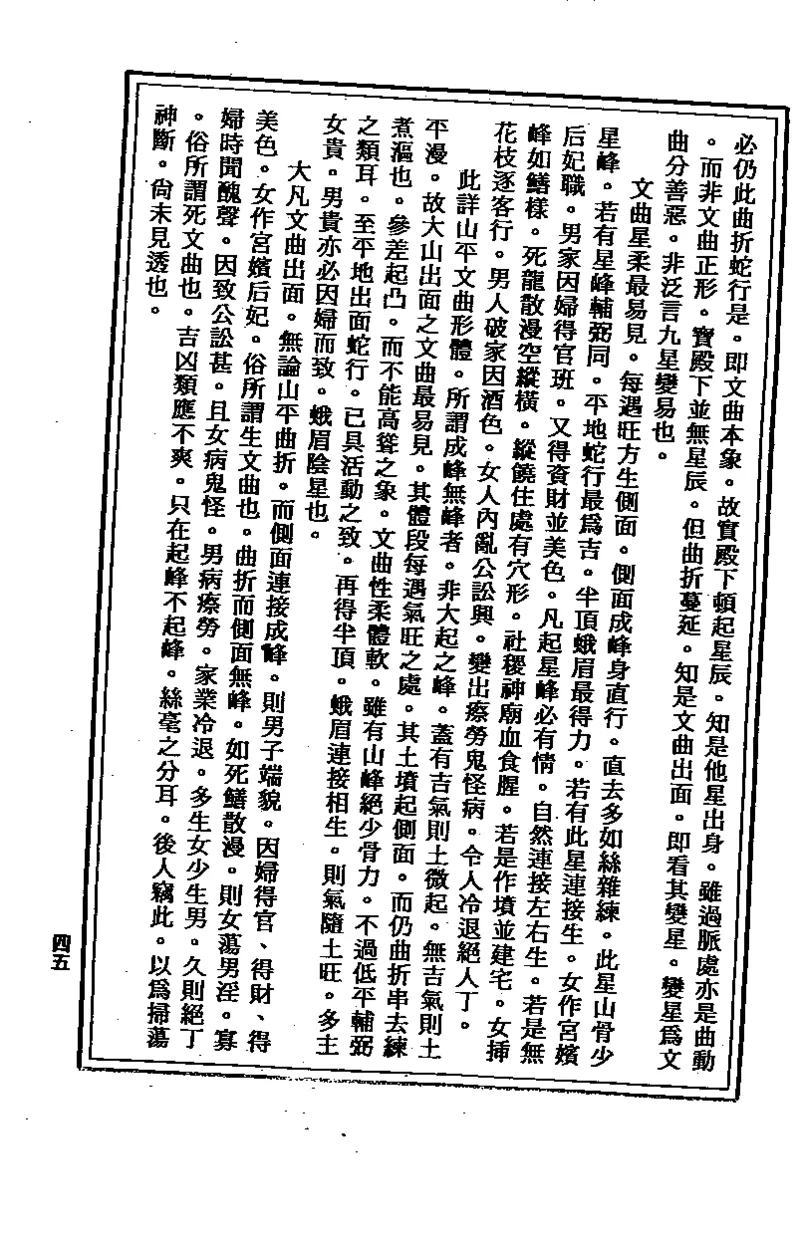 必仍此曲折蛇行是。即文曲本象。故寳殿下頓起星辰。知是他星出身。雖過脈處亦是曲動
。而非文曲正形。寳殿下並無星辰。但曲折蔓延。知是文曲出面。即看其變星。變星爲文
曲分善惡。非泛言九星變易也。
文曲星柔最易見。每遇旺方生側面。側面成峰身直行。直去多如絲雜練。此星山骨少
星峰。若有星峰輔弼同。平地蛇行最爲吉。半頂蛾眉最得力。若有此星連接生。女作宮嬪
后妃職。男家因婦得官班。又得資財並美色。凡起星峰必有情。自然連接左右生。若是無
峰如鱔樣。死龍散漫空縱橫。縱饒住處有穴形。社稷神廟血食腥。若是作墳並建宅。女挿
花枝逐客行。男人破家因酒色。女人內亂公訟興。變出瘵勞鬼怪病。令人冷退絕人丁。
此詳山平文曲形體。所謂成峰無峰者。非大起之峰。蓋有吉氣則土微起。無吉氣則土
平漫。故大山出面之文曲最易見。其體段每遇氣旺之處。其土墳起側面。而仍曲折串去練
煮漚也。參差起凸。而不能高聳之象。文曲性柔體軟。雖有山峰絕少骨力。不過低平輔弼
之類耳。至平地出面蛇行。已具活動之致。再得半頂。蛾眉連接相生。則氣隨土旺。多主
女貴。男貴亦必因婦而致。蛾眉陰星也。
大凡文曲出面。無論山平曲折。而側面連接成峰。則男子端貌。因婦得官、得財、得
美色。女作宮嬪后妃。俗所謂生文曲也。曲折而側面無峰。如死鱔散漫。則女蕩男淫。寡
婦時聞醜聲。因致公訟甚。且女病鬼怪。男病瘵勞。家業冷退。多生女少生男。久則絕丁
。俗所謂死文曲也。吉凶類應不爽。只在起峰不起峰。絲毫之分耳。後人竊此。以爲掃蕩
神斷。尙未見透也。
四五